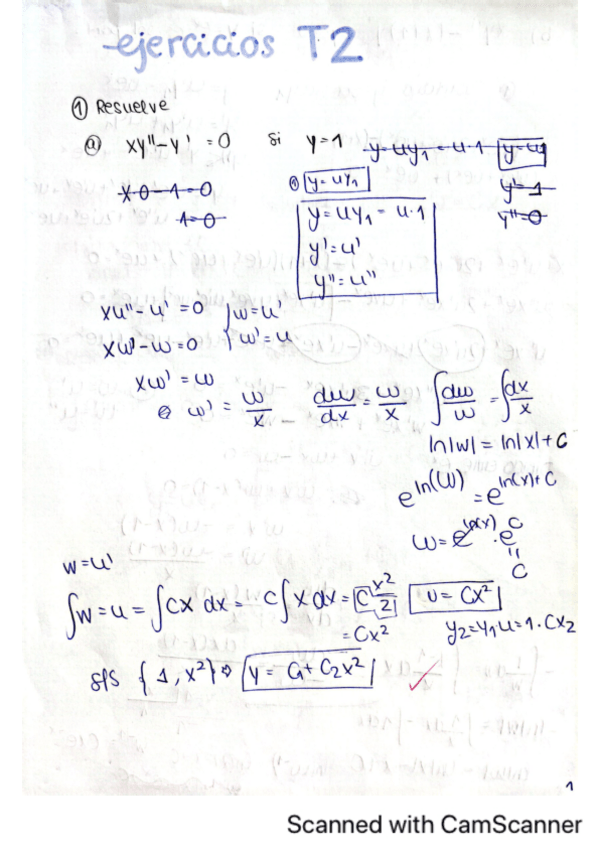 ejercicios T2
① Resuelve
ⓐ xy'' - y' = 0 Si y=1 y=uy₁=u·1 y=u
x·0-1=0 y=uy₁ y'=1
1=0 y=uy₁=u·1 y''=0
y'=u'
y''=u''
xu''-u'=0 w=u'
xw'-w=0 w'=u
xw'=w
w'=w/x dw/dx=w/x ∫dw/w=∫dx/x
ln|w|=ln|x|+C
e^ln(w)=e^ln(x)+C
w=e^ln(x)·e^C
"
C
w=u'
∫w=u=∫Cx dx=C∫x dx=C x²/2 u=Cx²
=Cx² y₂=y₁u=1·Cx₂
SfS {1,x²}⇒ y=C₁+C₂x²
1
Scanned with CamScanner